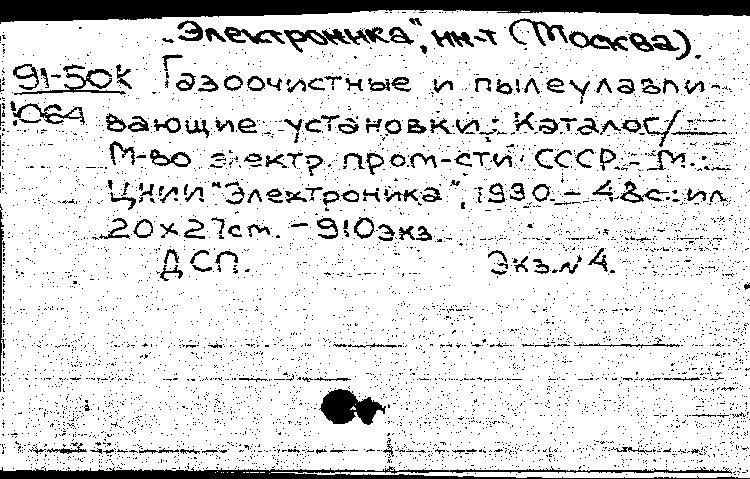 „Электроника", ин-т (Москва).
91-50к Газоочистные и пылеулавли-
1064 вающие установки: Каталог/
М-во электр. пром-сти СССР.- М.:
ЦНИИ "Электроника", 1990 - 48с.: ил
20х27см. - 910экз.
ДСП. Экз.№4.